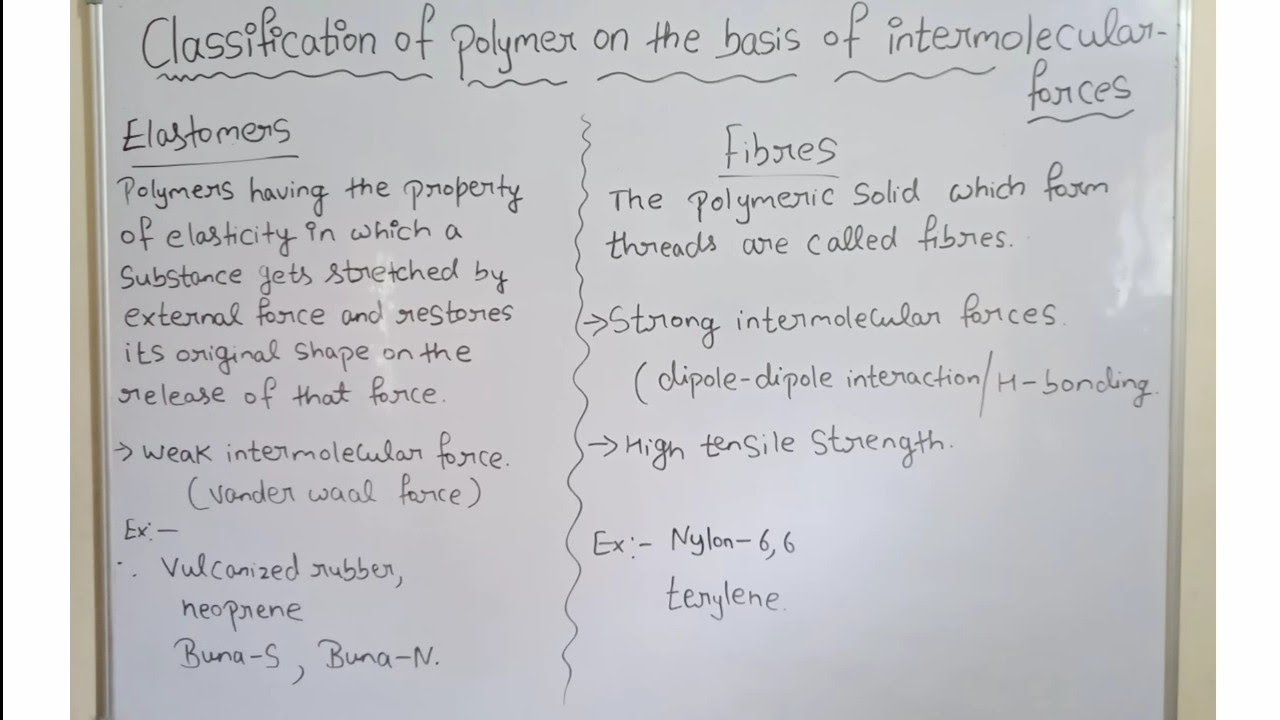 Classification of polymer on the basis of intermolecular-
forces
Elastomers
Polymers having the property
of elasticity in which a
substance gets stretched by
external force and restores
its original shape on the
release of that force.
→ weak intermolecular force.
(vander waal force)
Ex:-
Vulcanized rubber,
neoprene
Buna-S, Buna-N.
Fibres
The polymeric solid which form
threads are called fibres.
→ Strong intermolecular forces.
(dipole-dipole interaction/H-bonding.
→ High tensile strength.
Ex:- Nylon-6,6
terylene.